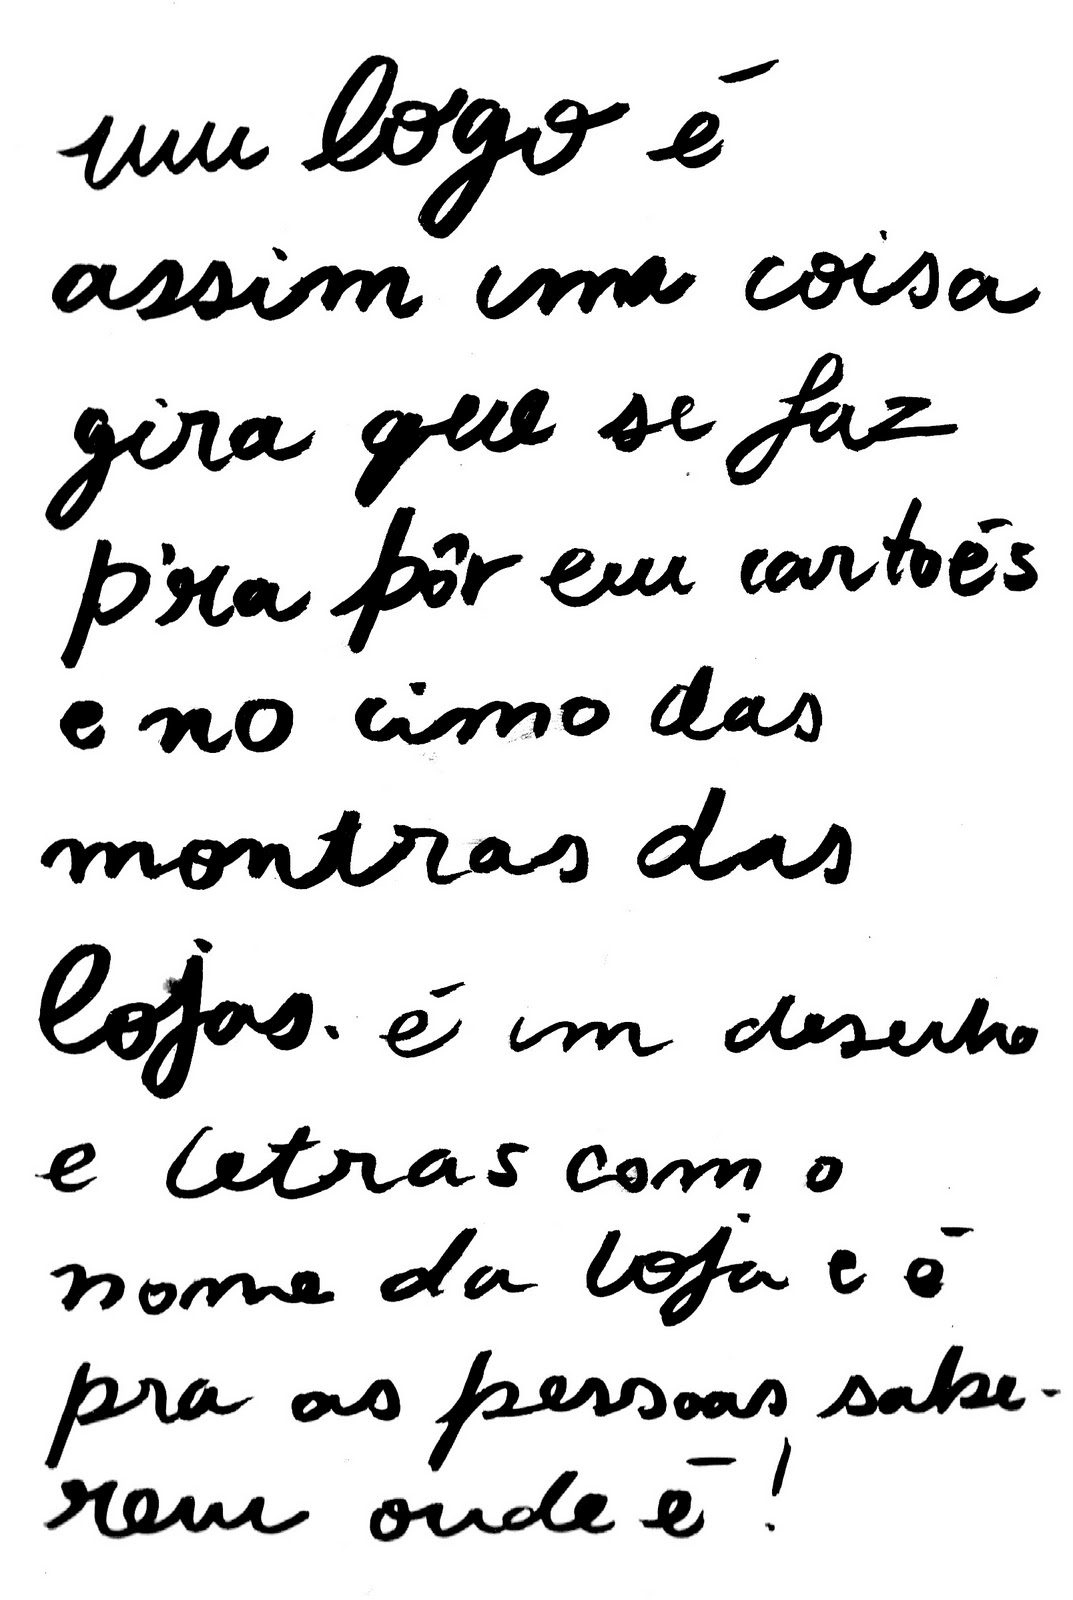 um logo é
assim uma coisa
gira que se faz
p'ra pôr em cartoés
e no cimo das
montras das
lojas. é um desenho
e letras com o
nome da loja e é
pra as pessoas sabe-
rem onde é!